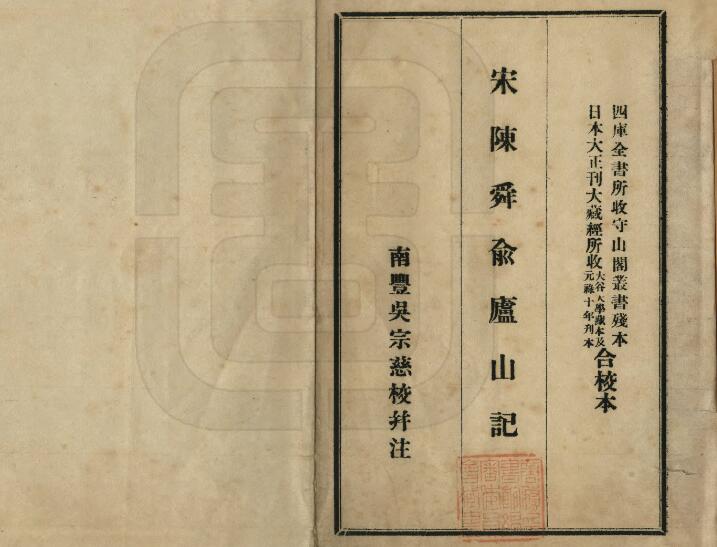 四庫全書所收守山閣叢書殘本
日本大正刊大藏經所收大谷大學藏本及元祿十年刊本合校本
宋陳舜俞廬山記
南豐吳宗慈校幷注